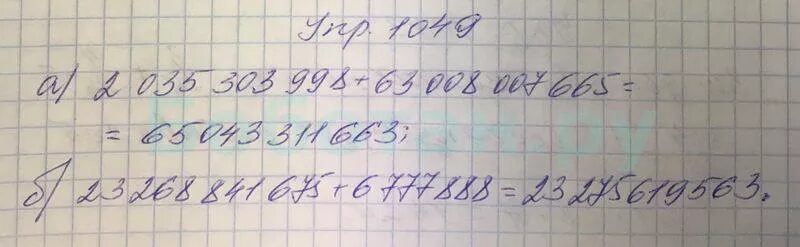 Упр. 1049
а) 2 035 303 998 + 63 008 007 665 =
= 65 043 311 663;
б) 23 268 841 675 + 6 777 888 = 23 275 619 563.